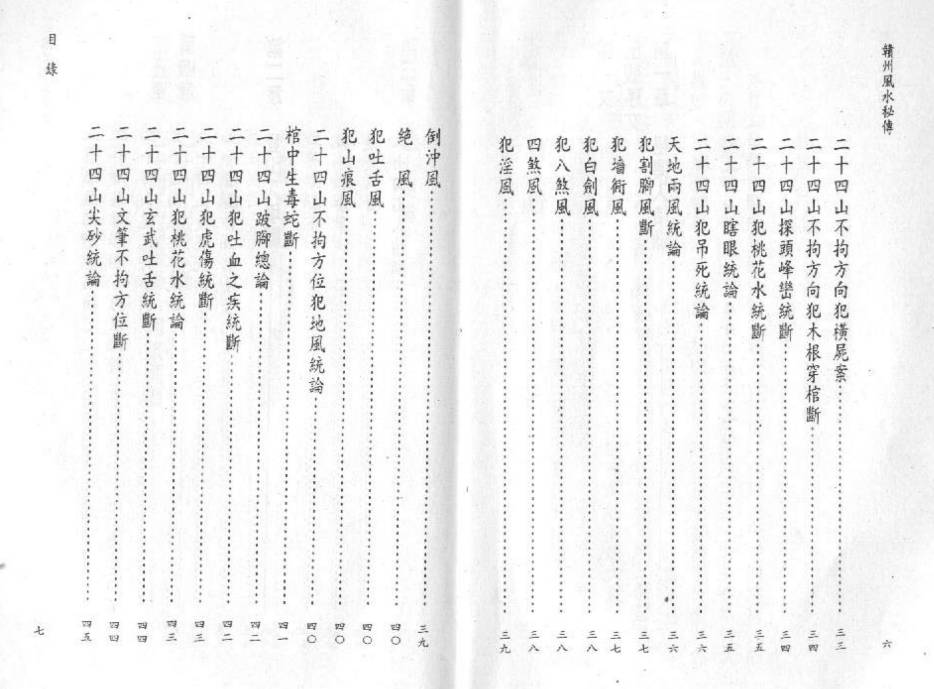 贛州風水秘傳
二十四山不拘方向犯橫屍案⋯⋯三三
二十四山不拘方向犯木根穿棺斷⋯⋯三四
二十四山探頭峰巒統斷⋯⋯三四
二十四山犯桃花水統斷⋯⋯三五
二十四山瞎眼統論⋯⋯三五
二十四山犯吊死統論⋯⋯三六
天地兩風統論⋯⋯三六
犯割腳風斷⋯⋯三七
犯墻衖風⋯⋯三七
犯白劍風⋯⋯三八
犯八煞風⋯⋯三八
四煞風⋯⋯三八
犯淫風⋯⋯三九
六
目錄
倒沖風⋯⋯三九
絕　風⋯⋯四〇
犯吐舌風⋯⋯四〇
犯山痕風⋯⋯四〇
二十四山不拘方位犯地風統論⋯⋯四〇
棺中生毒蛇斷⋯⋯四一
二十四山跛腳總論⋯⋯四二
二十四山犯吐血之疾統斷⋯⋯四二
二十四山犯虎傷統斷⋯⋯四三
二十四山犯桃花水統論⋯⋯四三
二十四山玄武吐舌統斷⋯⋯四四
二十四山文筆不拘方位斷⋯⋯四四
二十四山尖砂統論⋯⋯四五
七